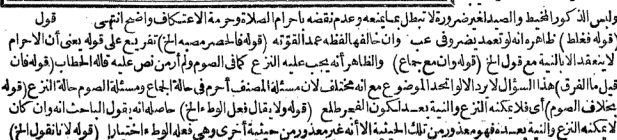 ولبس الذكور المخيط والصيد لغير ضرورة لا تبطل عبا يمنعه وعدم نقضه باحرام الصلاة وحرمة الاعتكاف واضح انتهى قول
(قوله فغلط) ظاهره انه لو تعمد يضر وفى عب وان خالفها لفظه عمدا لقوّته (قوله فالحصر مصبه الخ) تفريع على قوله يعنى أن الاحرام
لا ينعقد الا بالنية مع قول الخ (قوله وان مع جماع) والظاهر أنه يجب عليه النزع كما فى الصوم ولم أر من نص عليه قاله الحطاب (قوله فان
قيل ما الفرق) هذا السؤال لا يرد الا لو اتحد الموضوع مع انه مختلف لان مسئلة المصنف أحرم فى حالة الجماع ومسئلة الصوم حالة النزع (قوله
بخلاف الصوم) أى فلا يمكنه النزع والنية بعد لكون الفجر طلع (قوله ولا يقال فعل الوطء الخ) حاصله انه بقول الباحث انه وان كان
لا يمكنه النزع والنية بعده فهو معذور من تلك الحيثية الا أنه غير معذور من حيثية أخرى وهى فعله الوطء اختيارا (قوله لانا نقول الخ)